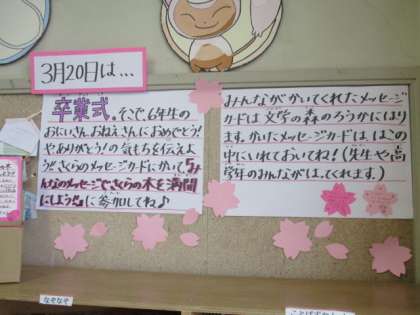 3月20日は…
卒業式。そこで、6年生の
おにいさん、おねえさんに「おめでとう!
やありがとう!の気もちを伝えよ
う!!さくらのメッセージカードにかいて『み
んなのメッセージでさくらの木を満開
にしよう!!』に参加してね♪
みんながかいてくれたメッセージ
カードは文学の森のろうかにはり
ます。かいたメッセージカードは、はこの
中にいれておいてね!(先生や高
学年のみんながはってくれます。)
なぞなぞ